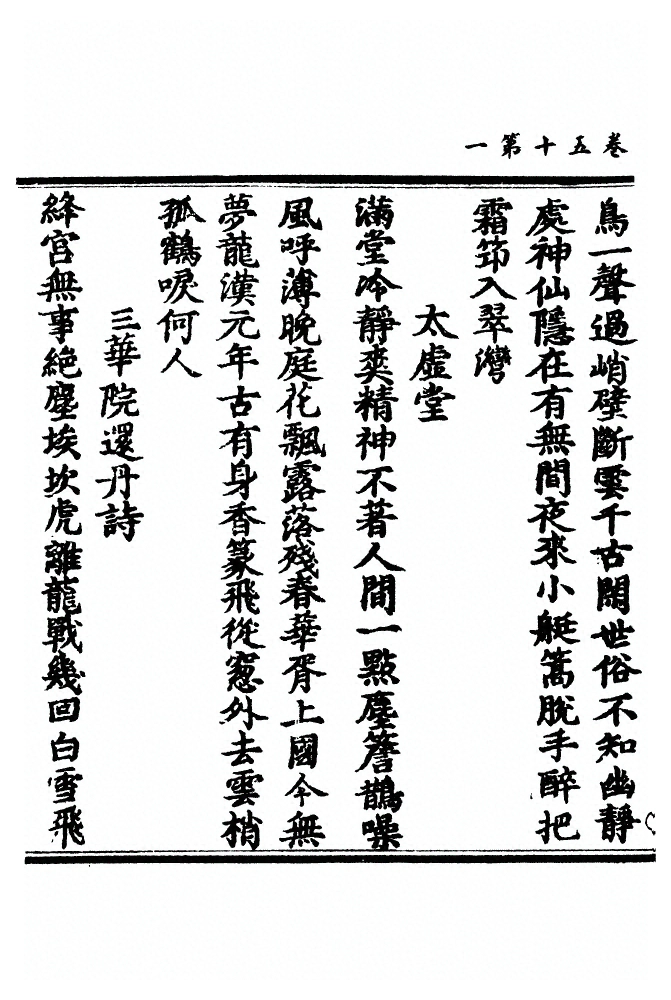 卷五十第一
鳥一聲過峭壁斷雲千古閒世俗不知幽靜
處神仙隱在有無間夜來小艇篙脫手醉把
霜笻入翠灣
太虛堂
滿堂冷靜爽精神不著人間一點塵簷鵲噪
風呼薄晚庭花飄露落殘春華胥上國今無
夢龍漢元年古有身香篆飛從窻外去雲梢
孤鶴唳何人
三華院還丹詩
絳宮無事絕塵埃坎虎離龍戰幾回白雪飛